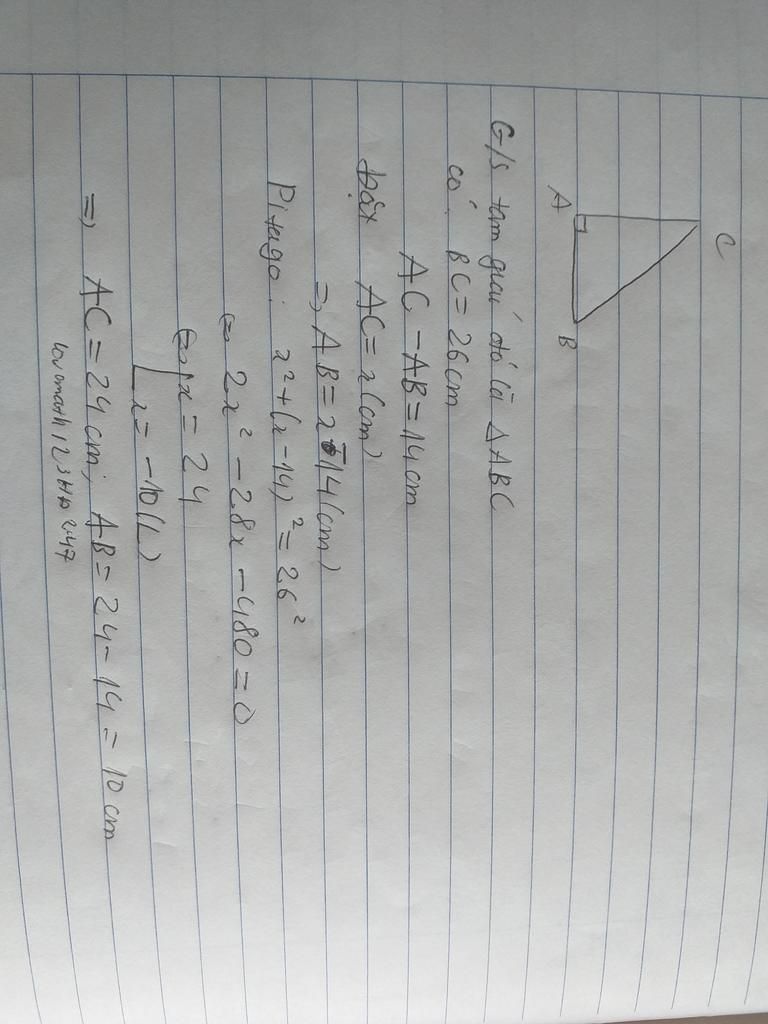 C
A
B
G/s tam giác đó là △ABC
có BC = 26cm
AC - AB = 14cm
Đặt AC = x(cm)
=> AB = x - 14(cm)
Pitago: x² + (x - 14)² = 26²
<=> 2x² - 28x - 480 = 0
<=> [x = 24
x = -10(L)
=> AC = 24cm; AB = 24 - 14 = 10 cm